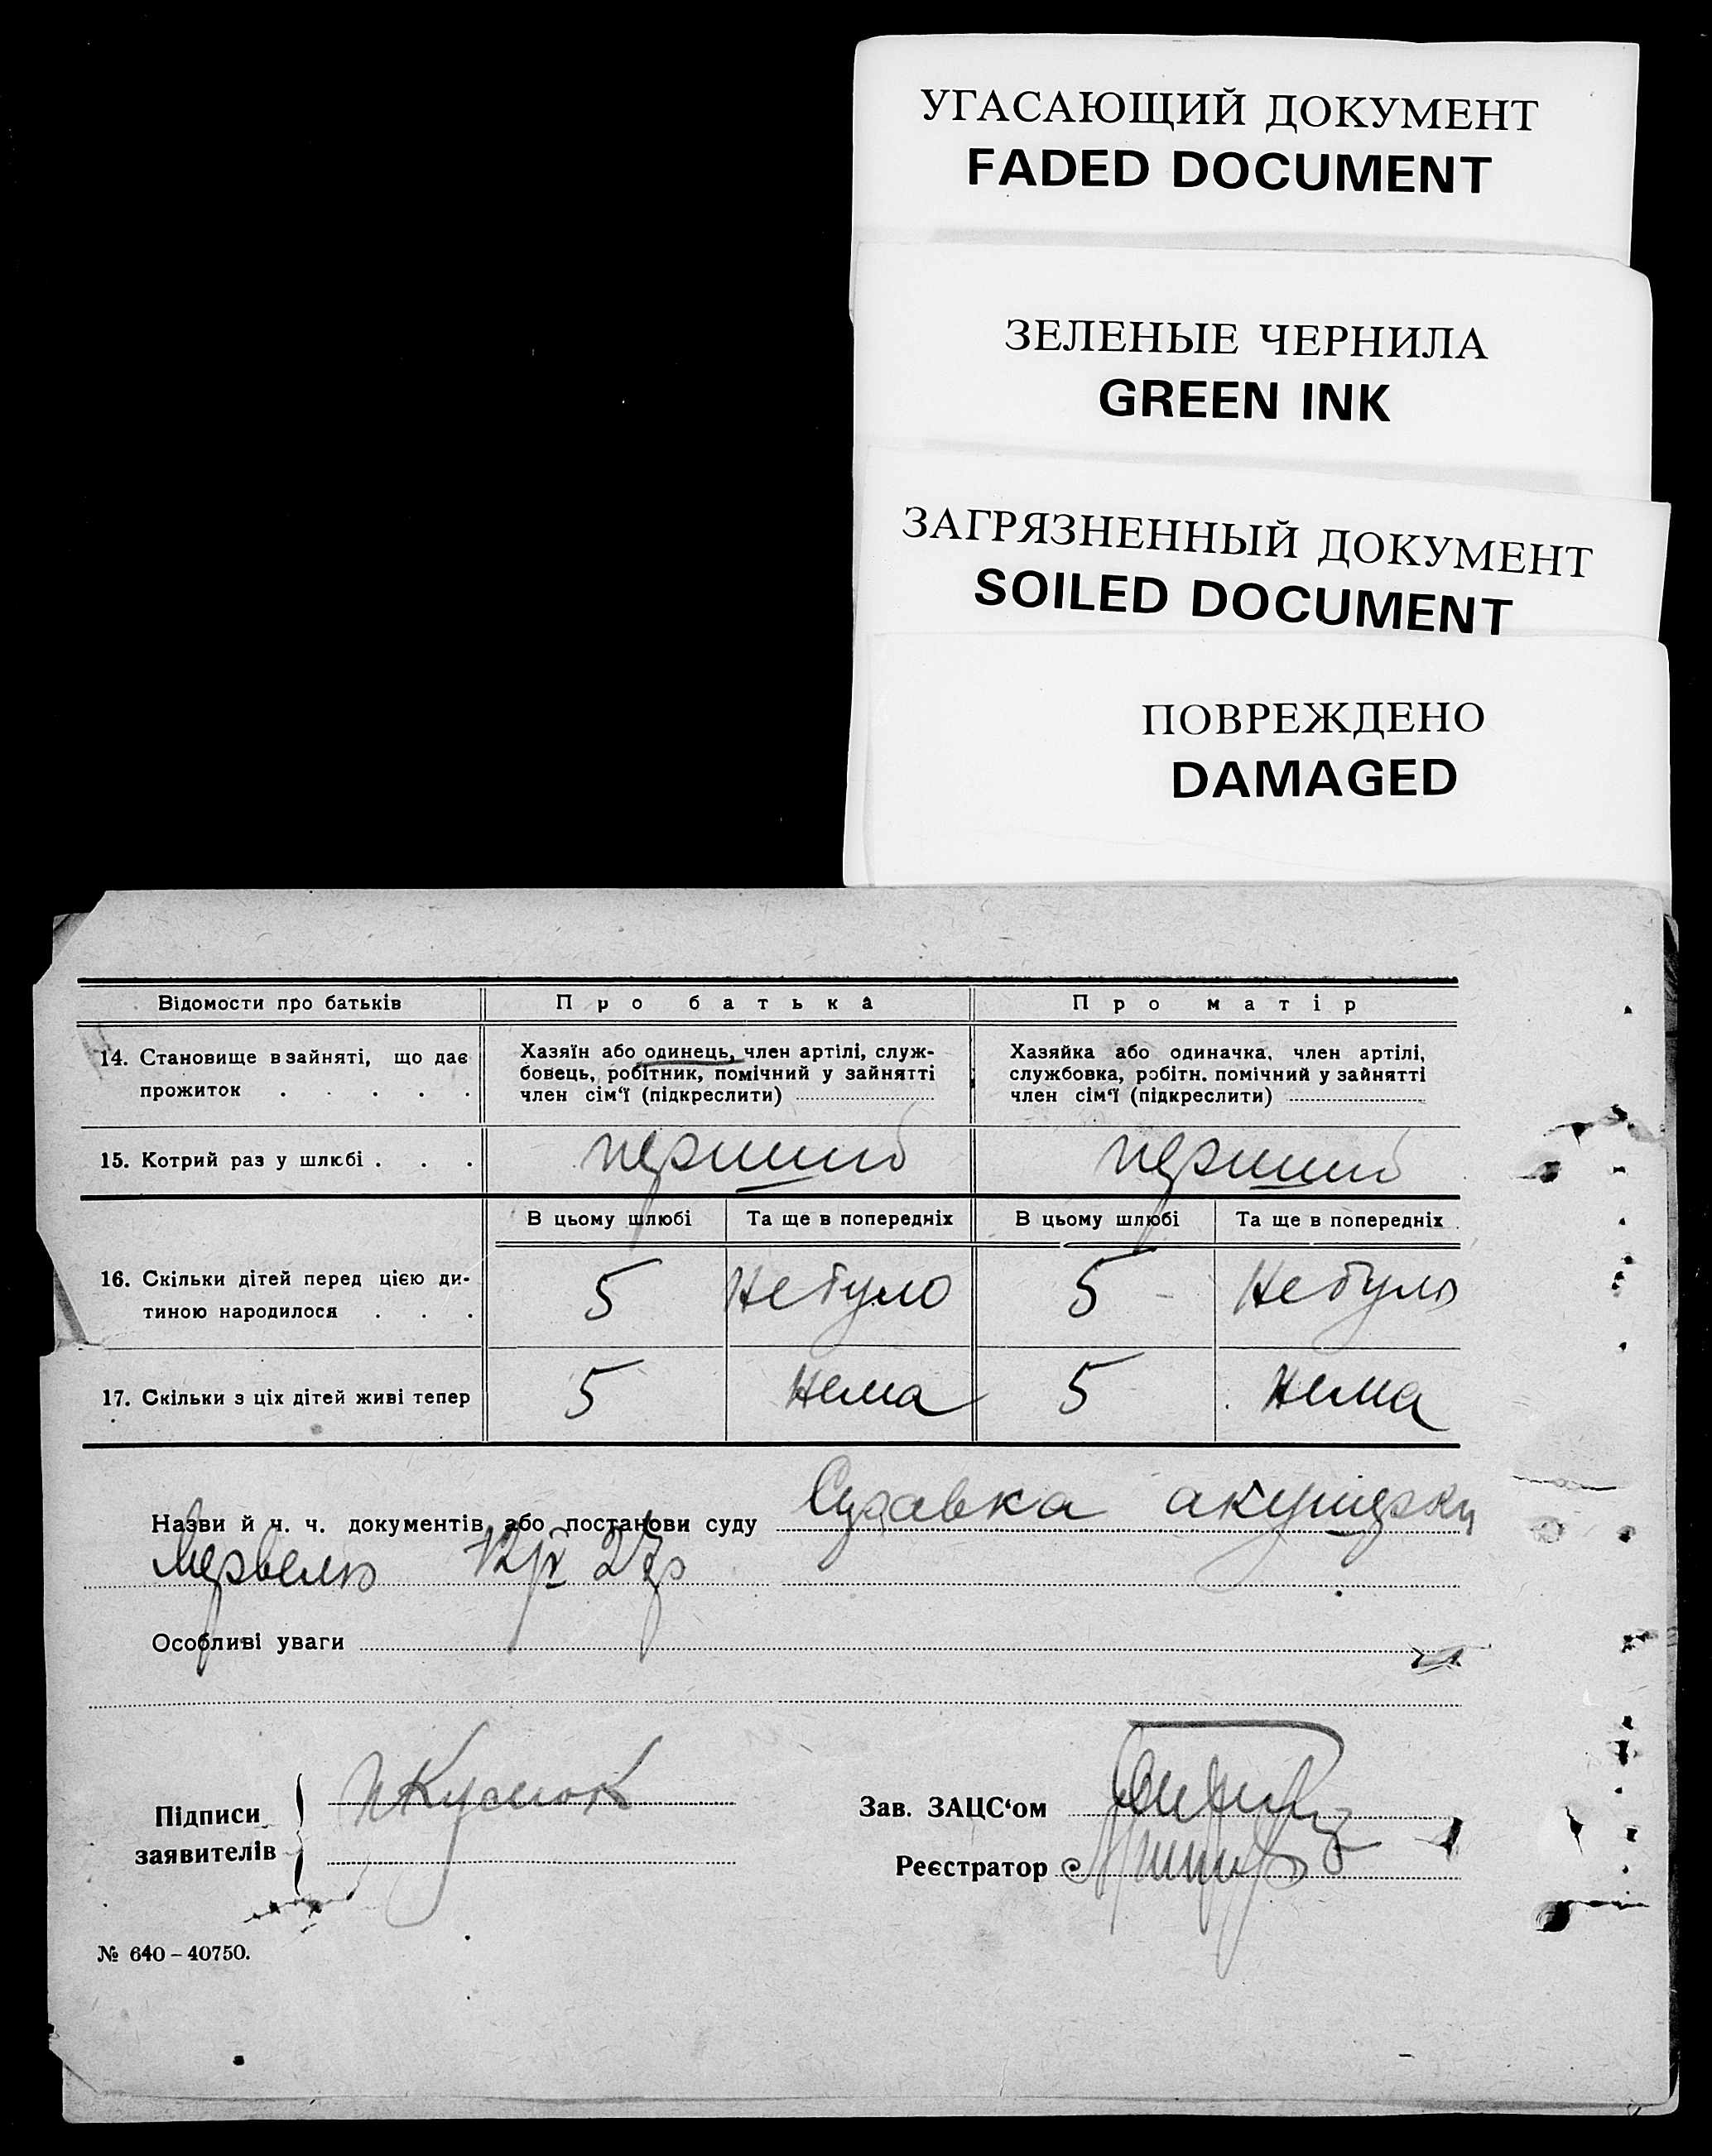 УГАСАЮЩИЙ ДОКУМЕНТ
FADED DOCUMENT
ЗЕЛЕНЫЕ ЧЕРНИЛА
GREEN INK
ЗАГРЯЗНЕННЫЙ ДОКУМЕНТ
SOILED DOCUMENT
ПОВРЕЖДЕНО
DAMAGED
Відомости про батьків Про батька Про матір
14. Становище в зайняті, що дає Хазяїн або одинець, член артілі, служ- Хазяйка або одиначка, член артілі,
прожиток . . . . . бовець, робітник, помічний у зайнятті службовка, робітн. помічний у зайнятті
член сім'ї (підкреслити) член сім'ї (підкреслити)
15. Котрий раз у шлюбі . . . перший перший
В цьому шлюбі Та ще в попередніх В цьому шлюбі Та ще в попередніх
16. Скільки дітей перед цією ди- 5 Небуло 5 Небуло
тиною народилося . . .
17. Скільки з ціх дітей живі тепер 5 Нема 5 Нема
Назви й ч. ч. документів або постанови суду Справка акушерки
12/ІІ 27р
Особливі уваги
Підписи
заявителів
Зав. ЗАЦС'ом
Реєстратор
№ 640 – 40750.